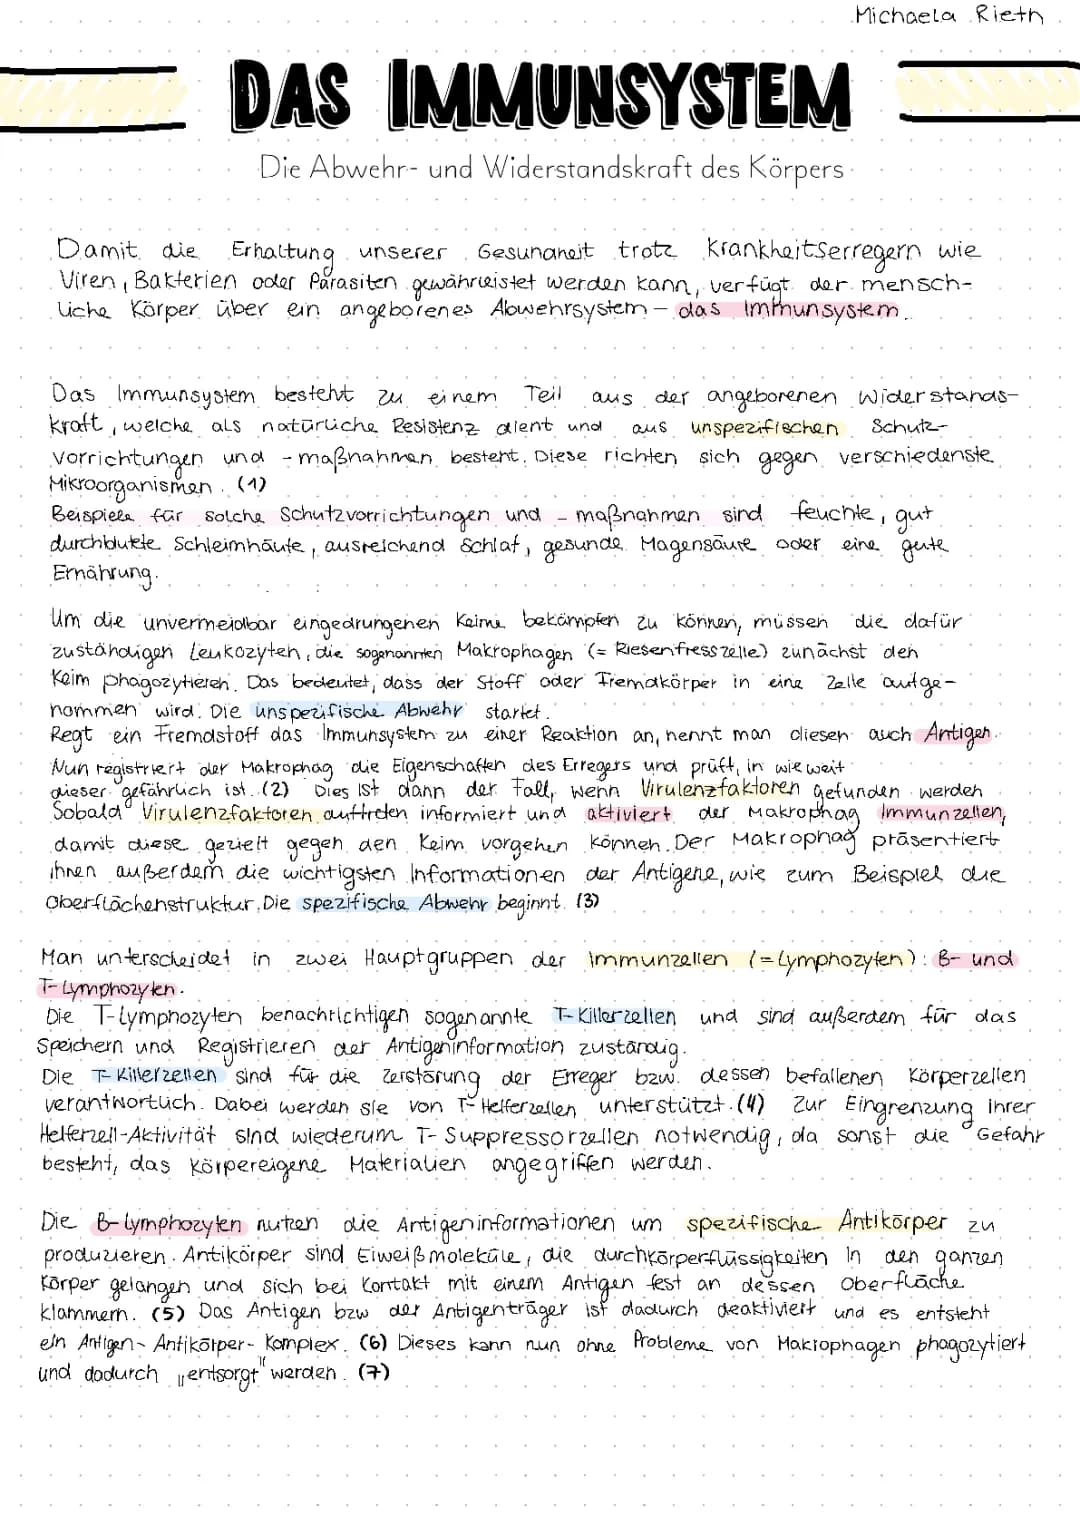 Michaela Rieth
DAS IMMUNSYSTEM
Die Abwehr- und Widerstandskraft des Körpers
Damit die Erhaltung unserer Gesundheit trotz Krankheitserregern wie
Viren, Bakterien oder Parasiten gewährleistet werden kann, verfügt der mensch-
liche Körper über ein angeborenes Abwehrsystem – das Immunsystem.
Das Immunsystem besteht zu einem Teil aus der angeborenen Widerstands-
kraft, welche als natürliche Resistenz dient und aus unspezifischen Schutz-
vorrichtungen und -maßnahmen besteht. Diese richten sich gegen verschiedenste
Mikroorganismen. (1)
Beispiele für solche Schutzvorrichtungen und -maßnahmen sind feuchte, gut
durchblutete Schleimhäute, ausreichend Schlaf, gesunde Magensäure oder eine gute
Ernährung.
Um die unvermeidbar eingedrungenen Keime bekämpfen zu können, müssen die dafür
zuständigen Leukozyten, die sogenannten Makrophagen (= Riesenfresszelle) zunächst den
Keim phagozytieren. Das bedeutet, dass der Stoff oder Fremdkörper in eine Zelle aufge-
nommen wird. Die unspezifische Abwehr startet.
Regt ein Fremdstoff das Immunsystem zu einer Reaktion an, nennt man diesen auch Antigen.
Nun registriert der Makrophag die Eigenschaften des Erregers und prüft, in wie weit
dieser gefährlich ist. (2) Dies ist dann der Fall, wenn Virulenzfaktoren gefunden werden
Sobald Virulenzfaktoren auftreten informiert und aktiviert der Makrophag Immunzellen,
damit diese gezielt gegen den Keim vorgehen können. Der Makrophag präsentiert
ihnen außerdem die wichtigsten Informationen der Antigene, wie zum Beispiel die
Oberflächenstruktur. Die spezifische Abwehr beginnt. (3)
Man unterscheidet in zwei Hauptgruppen der Immunzellen (= Lymphozyten): B- und
T-Lymphozyten.
Die T-Lymphozyten benachrichtigen sogenannte T-Killerzellen und sind außerdem für das
Speichern und Registrieren der Antigeninformation zuständig.
Die T-Killerzellen sind für die Zerstörung der Erreger bzw. dessen befallenen Körperzellen
verantwortlich. Dabei werden sie von T-Helferzellen unterstützt. (4) Zur Eingrenzung ihrer
Helferzell-Aktivität sind wiederum T-Suppressorzellen notwendig, da sonst die Gefahr
besteht, das körpereigene Materialien angegriffen werden.
Die B-Lymphozyten nutzen die Antigeninformationen um spezifische Antikörper zu
produzieren. Antikörper sind Eiweißmoleküle, die durch Körperflüssigkeiten in den ganzen
Körper gelangen und sich bei Kontakt mit einem Antigen fest an dessen Oberfläche
klammern. (5) Das Antigen bzw der Antigenträger ist dadurch deaktiviert und es entsteht
ein Antigen-Antikörper-Komplex. (6) Dieses kann nun ohne Probleme von Makrophagen phagozytiert
und dadurch „entsorgt" werden. (7)